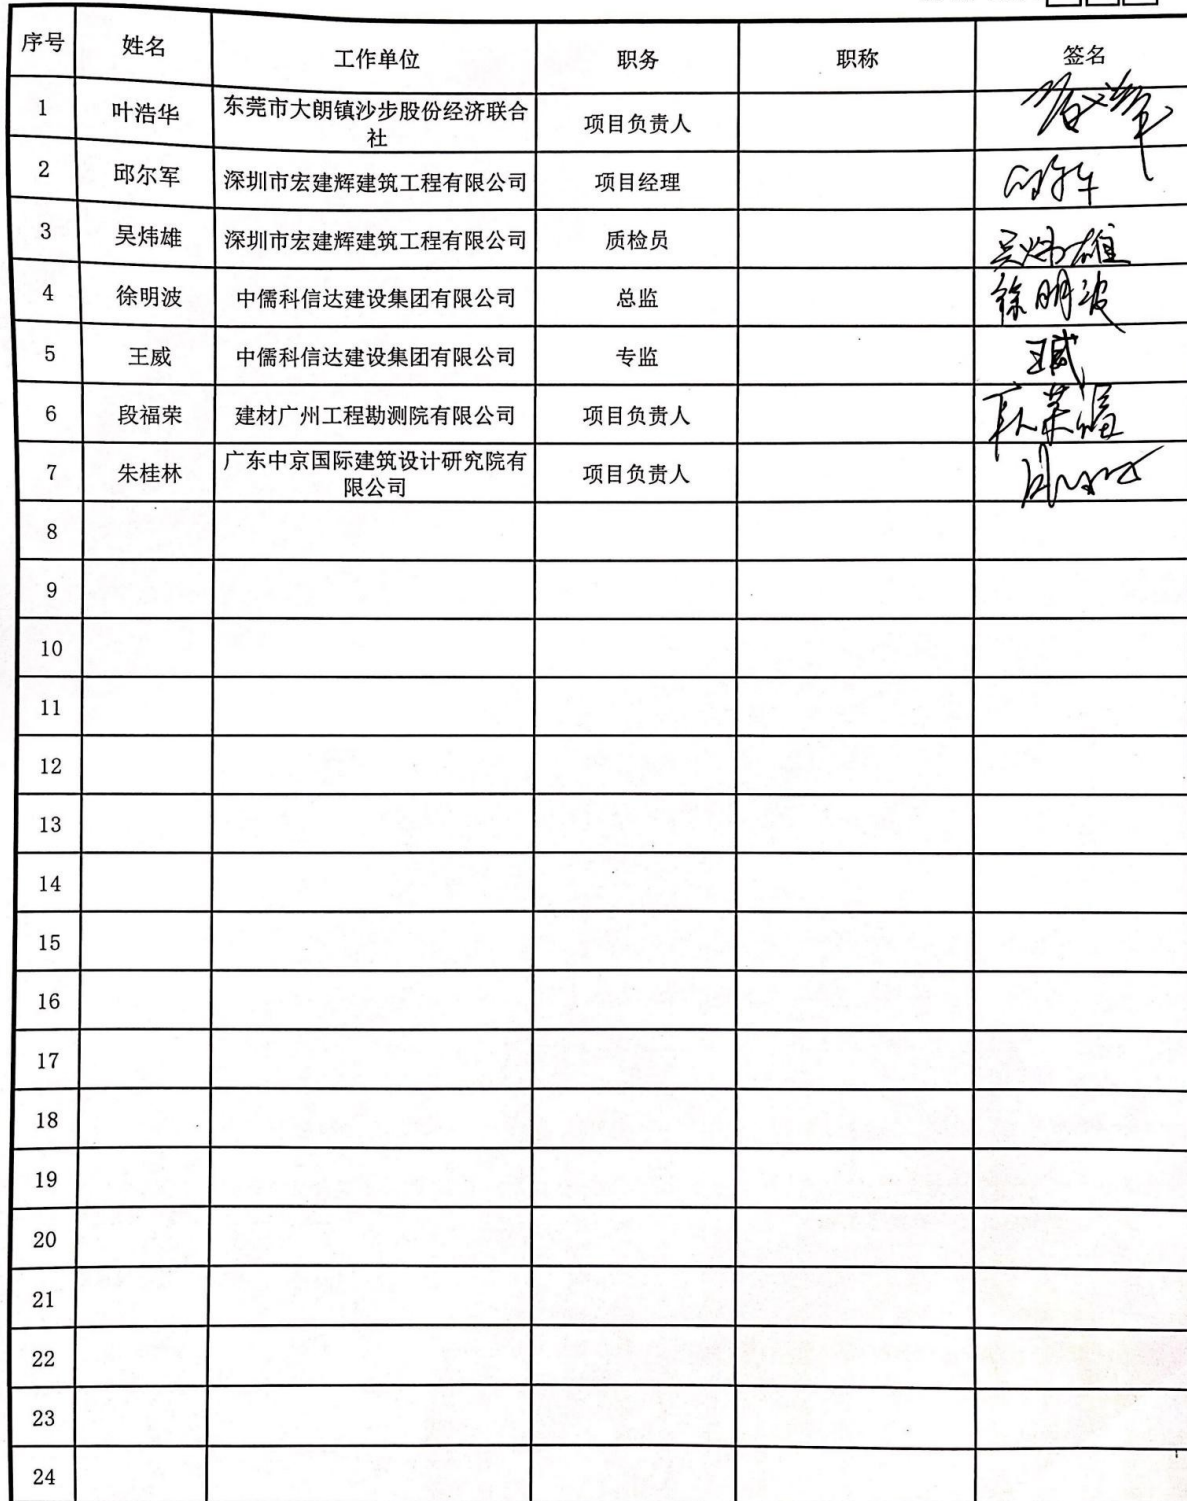 序号 姓名 工作单位 职务 职称 签名
1 叶浩华 东莞市大朗镇沙步股份经济联合
社 项目负责人
2 邱尔军 深圳市宏建辉建筑工程有限公司 项目经理
3 吴炜雄 深圳市宏建辉建筑工程有限公司 质检员 吴炜雄
4 徐明波 中儒科信达建设集团有限公司 总监 徐明波
5 王威 中儒科信达建设集团有限公司 专监 王威
6 段福荣 建材广州工程勘测院有限公司 项目负责人
7 朱桂林 广东中京国际建筑设计研究院有
限公司 项目负责人
8
9
10
11
12
13
14
15
16
17
18
19
20
21
22
23
24